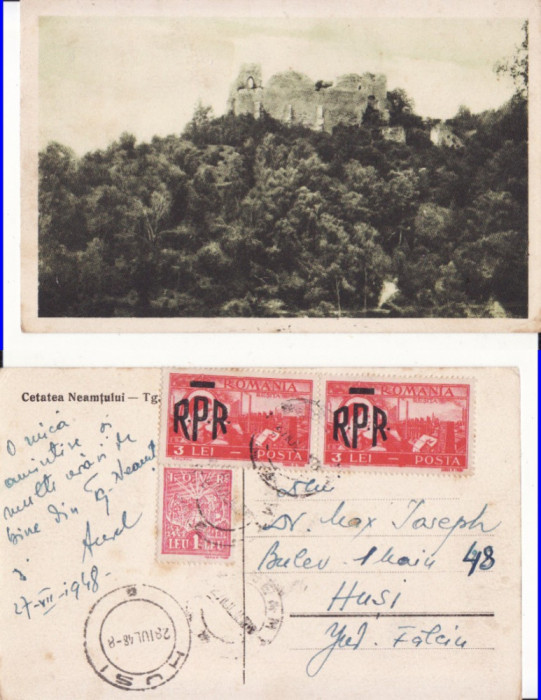 Cetatea Neamțului — Tg.
ROMANIA
RPR
3 LEI — POSTA
ROMANIA
RPR
3 LEI — POSTA
I.O.V.R.
LEU 1 LEU
O mică
amintire și
multe urări de
bine din Tg. Neamț
Aurel
27-VII-1948-
Dr Max Joseph
Bulev. 1 Maiu 48
HUSI
Jud. Fălciu
28 IUL 48-8
HUSI